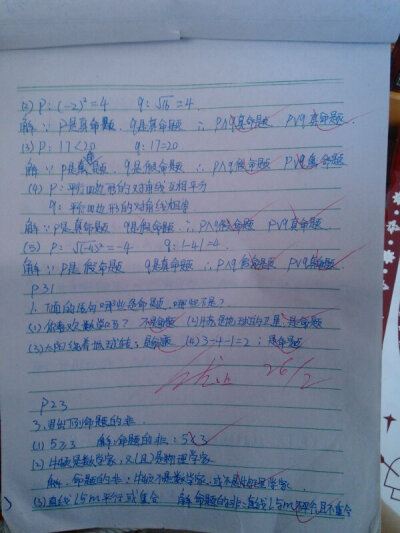 (2) P: (-2)²=4 q: √16=4.
解∵ P是真命题, q是真命题 ∴ P∧q真命题 P∨q真命题.
(3) P: 17<20 q: 17=20
解∵ P是真命题, q是假命题 ∴ P∧q假命题 P∨q真命题
(4) P: 平行四边形的对角线互相平分
q: 平行四边形的对角线相等
解∵ P是真命题 q是假命题 ∴ P∧q假命题 P∨q真命题
(5) P: √(-4)²=-4 q: |-4|=4.
解∵ P是假命题 q真命题 ∴ P∧q假命题 P∨q真命题.
P31
1. 下面的语句哪些是命题,哪些不是?
(1) 你喜欢数学吗? 不是命题 (2) 月球是地球的卫星; 是命题
(3) 太阳绕着地球转; 是命题 (4) 3=4-1=2; 是命题
26/2
P23
3. 写出下列命题的非.
(1) 5≥3 解: 命题的非: 5≱3
(2) 牛顿是数学家, 又(且)是物理学家
解: 命题的非: 牛顿不是数学家, 或不是物理学家.
(3) 直线l与m平行或重合 解 命题的非: 直线l与m不平行且不重合